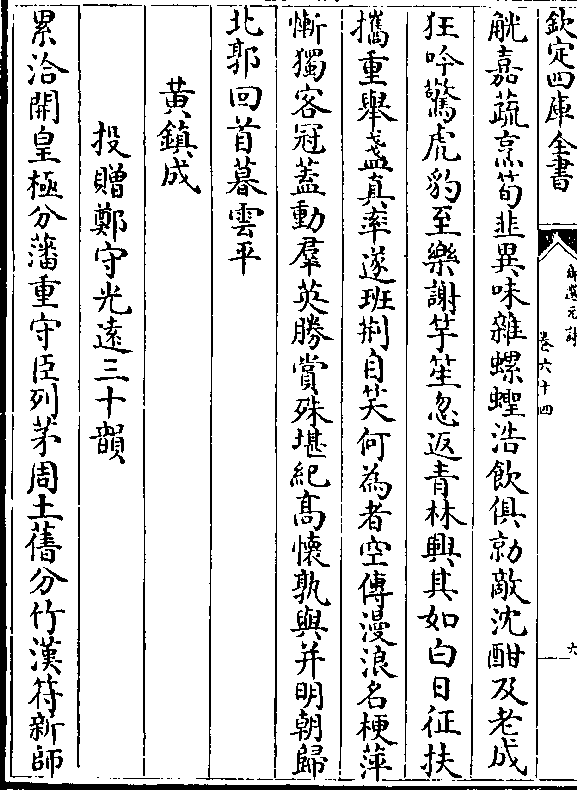 欽定四庫全書
御選元詩
卷六十四
六
觥嘉蔬烹筍韭異味雜螺蟶浩飲俱勍敵沈酣及老成
狂吟驚虎豹至樂謝竽笙忽返青林興其如白日征扶
攜重舉盞真率遂班荆自笑何為者空傳漫浪名梗萍
慚獨客冠蓋動羣英勝賞殊堪紀高懷孰與并明朝歸
北郭回首暮雲平
黄鎮成
投贈鄭守光遠三十韻
累洽開皇極分藩重守臣列茅周土舊分竹漢符新師